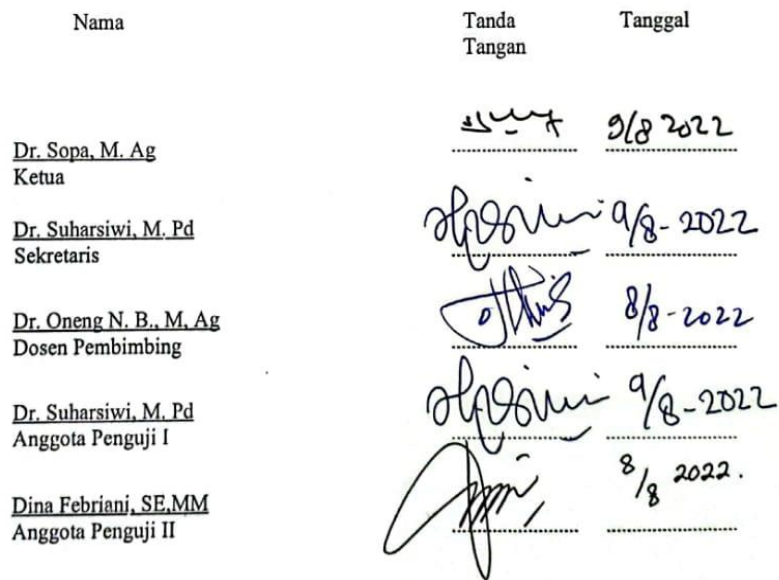 Nama Tanda Tanggal
Tangan
9/8 2022
Dr. Sopa, M. Ag
Ketua
9/8- 2022
Dr. Suharsiwi, M. Pd
Sekretaris
8/8-2022
Dr. Oneng N. B., M, Ag
Dosen Pembimbing
9/8-2022
Dr. Suharsiwi, M. Pd
Anggota Penguji I
8/8 2022.
Dina Febriani, SE,MM
Anggota Penguji II